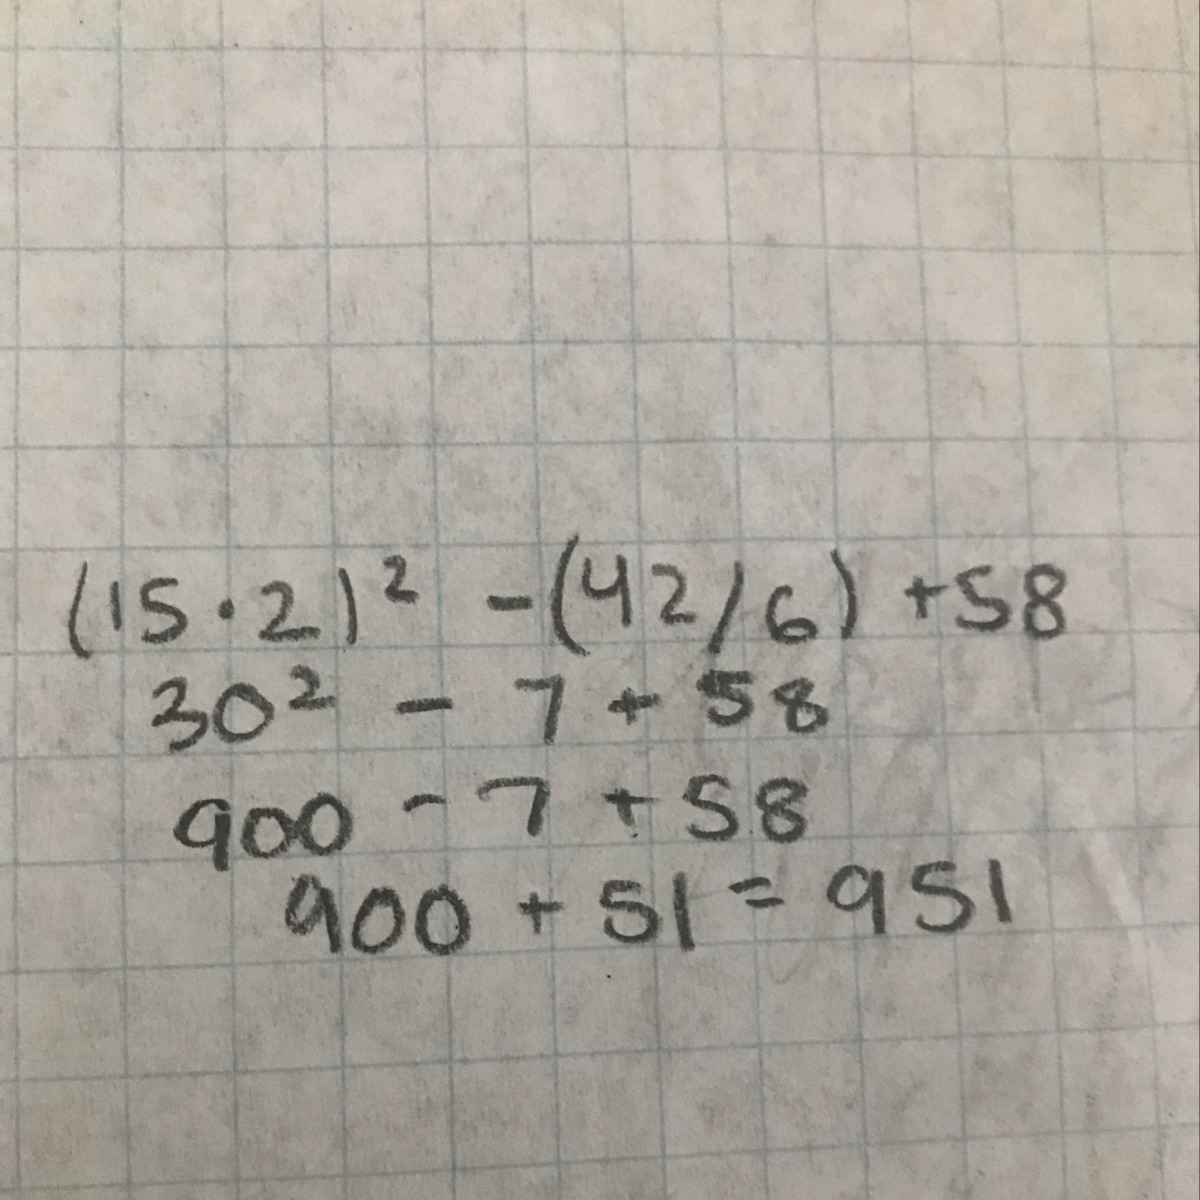 (15·2)² -(42/6) +58
30² - 7 + 58
900 - 7 + 58
900 + 51 = 951